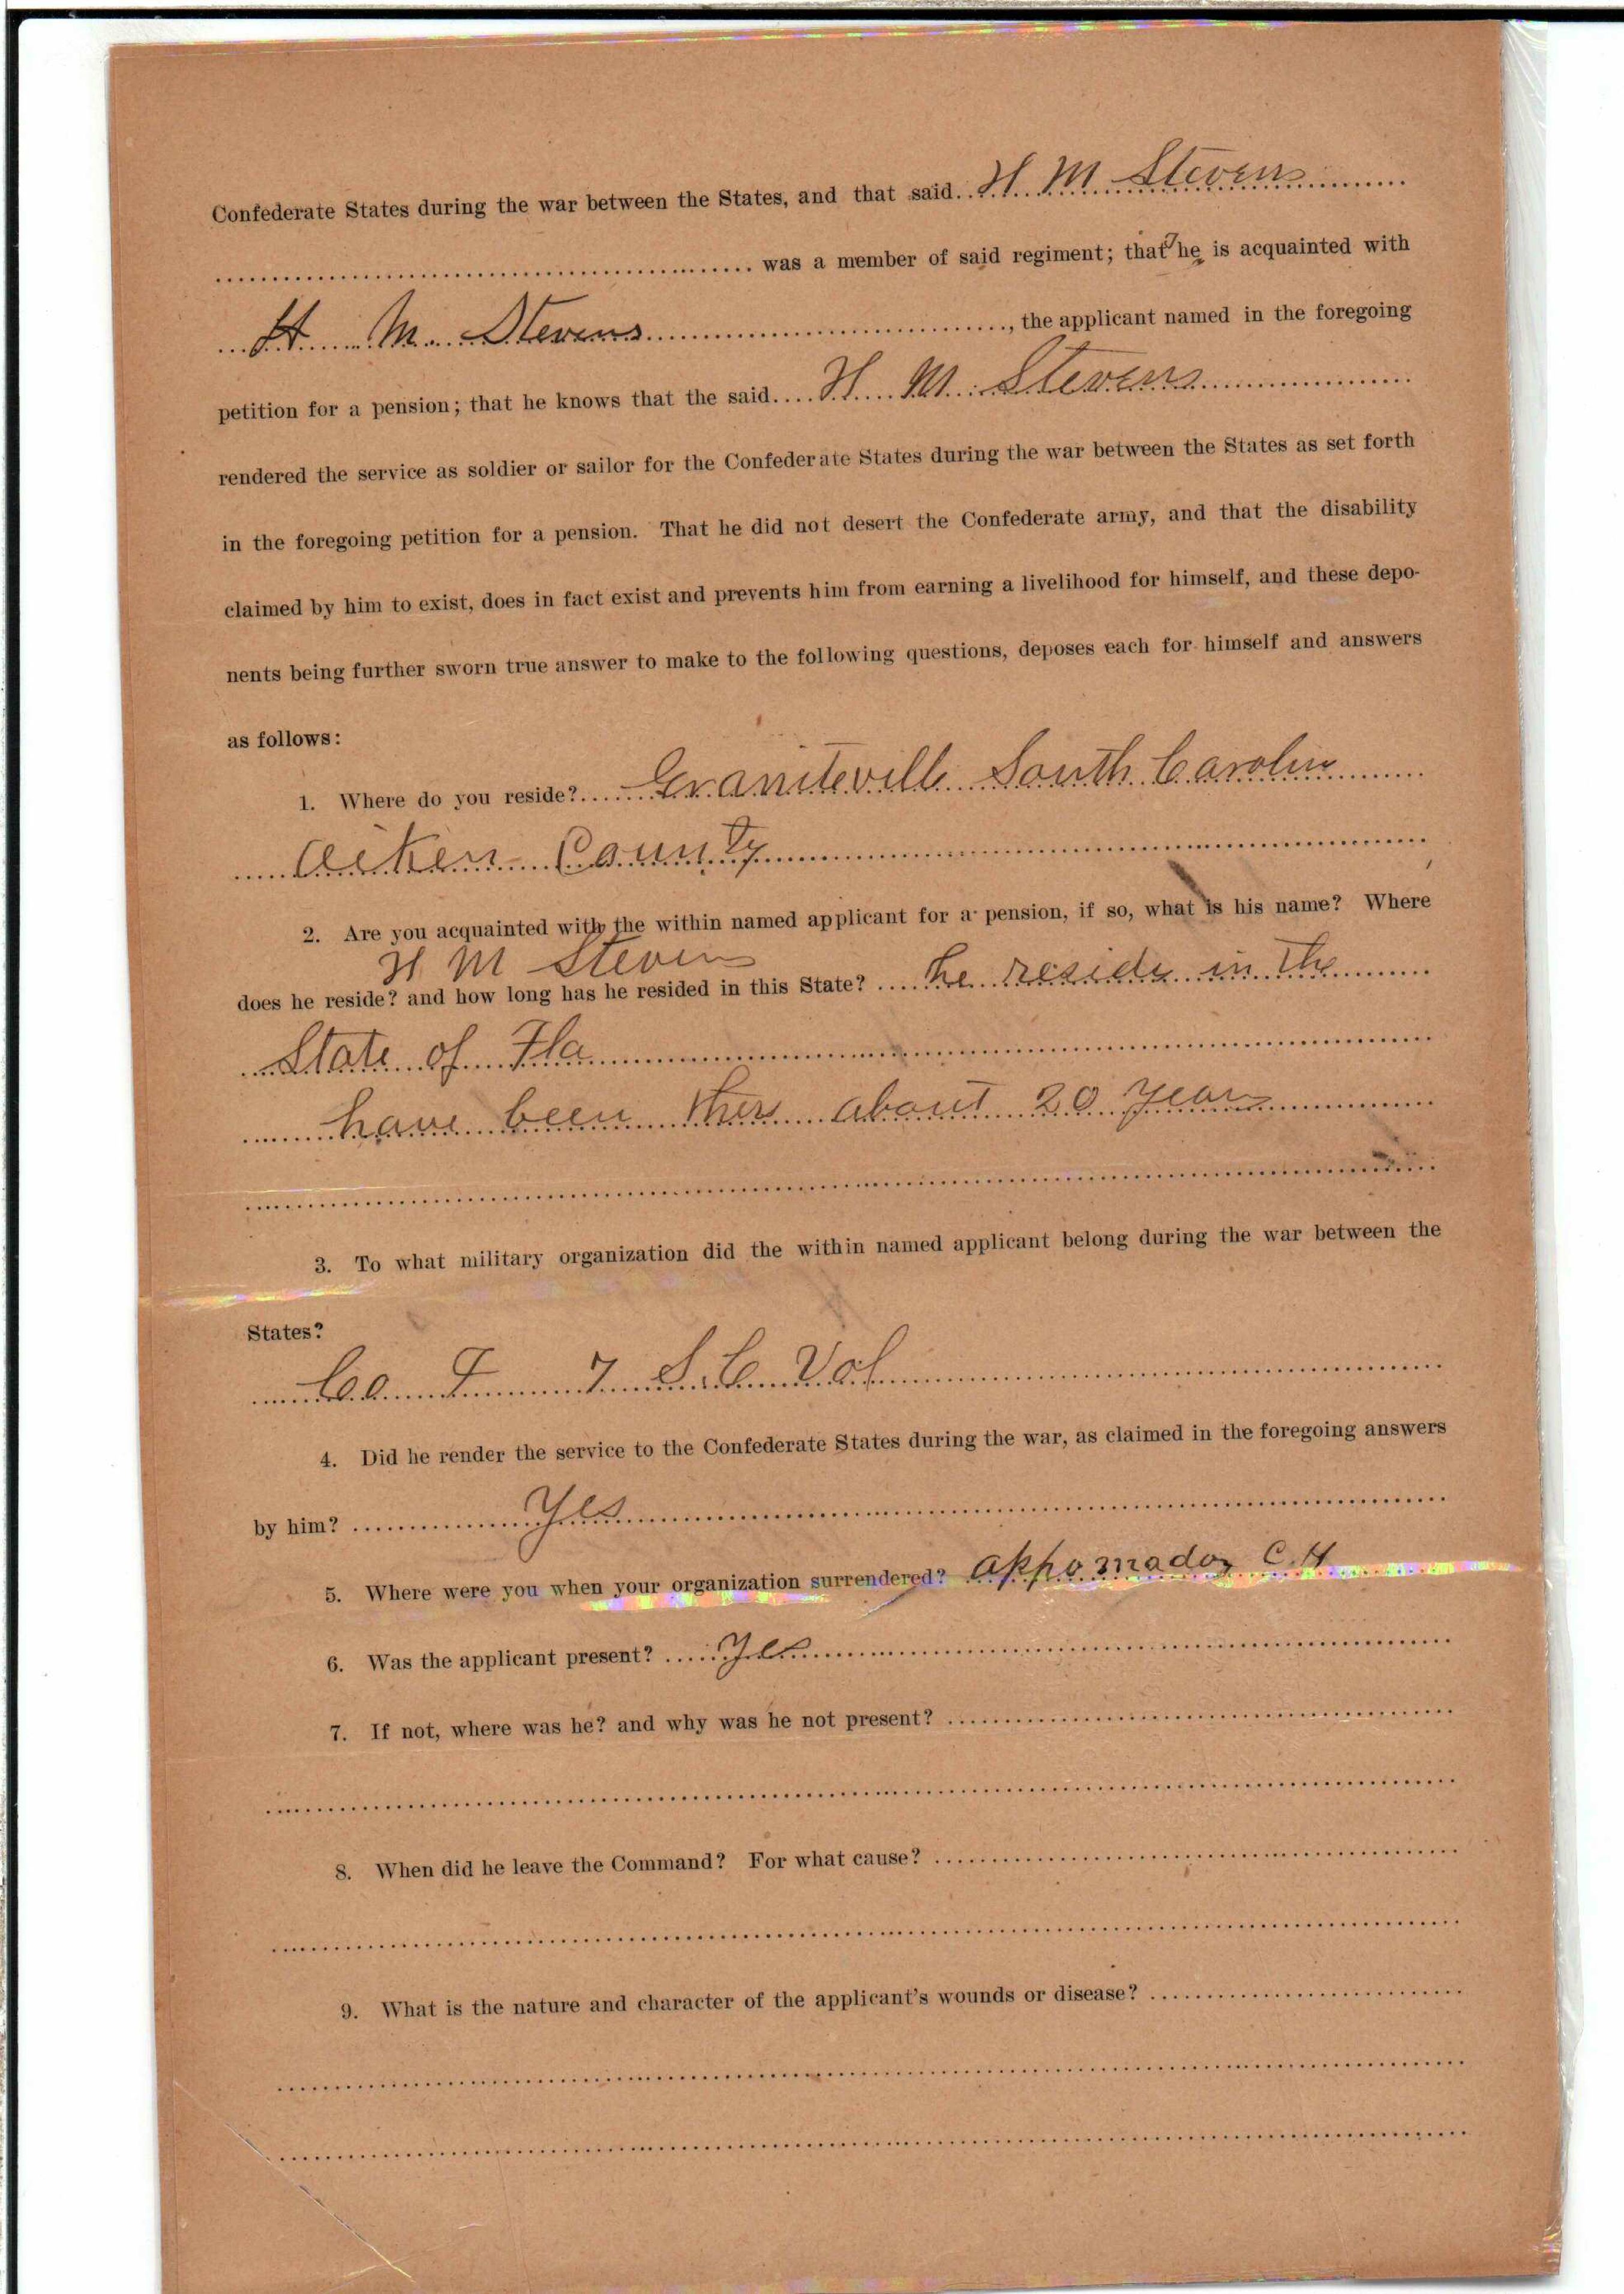 Confederate States during the war between the States, and that said H. M. Stevens
was a member of said regiment; that he is acquainted with
H. M. Stevens, the applicant named in the foregoing
petition for a pension; that he knows that the said H. M. Stevens
rendered the service as soldier or sailor for the Confederate States during the war between the States as set forth
in the foregoing petition for a pension. That he did not desert the Confederate army, and that the disability
claimed by him to exist, does in fact exist and prevents him from earning a livelihood for himself, and these depo-
nents being further sworn true answer to make to the following questions, deposes each for himself and answers
as follows:
1. Where do you reside? Graniteville South Carolin
Aiken County
2. Are you acquainted with the within named applicant for a pension, if so, what is his name? Where
H M Steven
does he reside? and how long has he resided in this State? he reside in the
State of Fla
have been ther about 20 year
3. To what military organization did the within named applicant belong during the war between the
States?
Co. F 7 S. C. Vol
4. Did he render the service to the Confederate States during the war, as claimed in the foregoing answers
by him? Yes
5. Where were you when your organization surrendered? appomadox C. H
6. Was the applicant present? Yes
7. If not, where was he? and why was he not present?
8. When did he leave the Command? For what cause?
9. What is the nature and character of the applicant's wounds or disease?